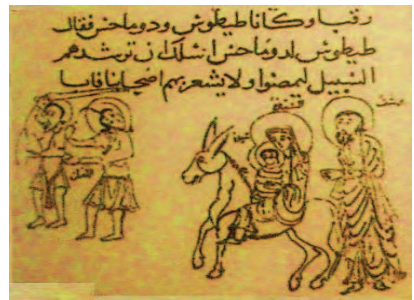 رقبا وكانا طيطوس ودوماخس فقال
طيطوس لدوماخس اسلك ان ترشدهم
السبيل ليمضوا ولا يشعر بهم اصحابنا فابا